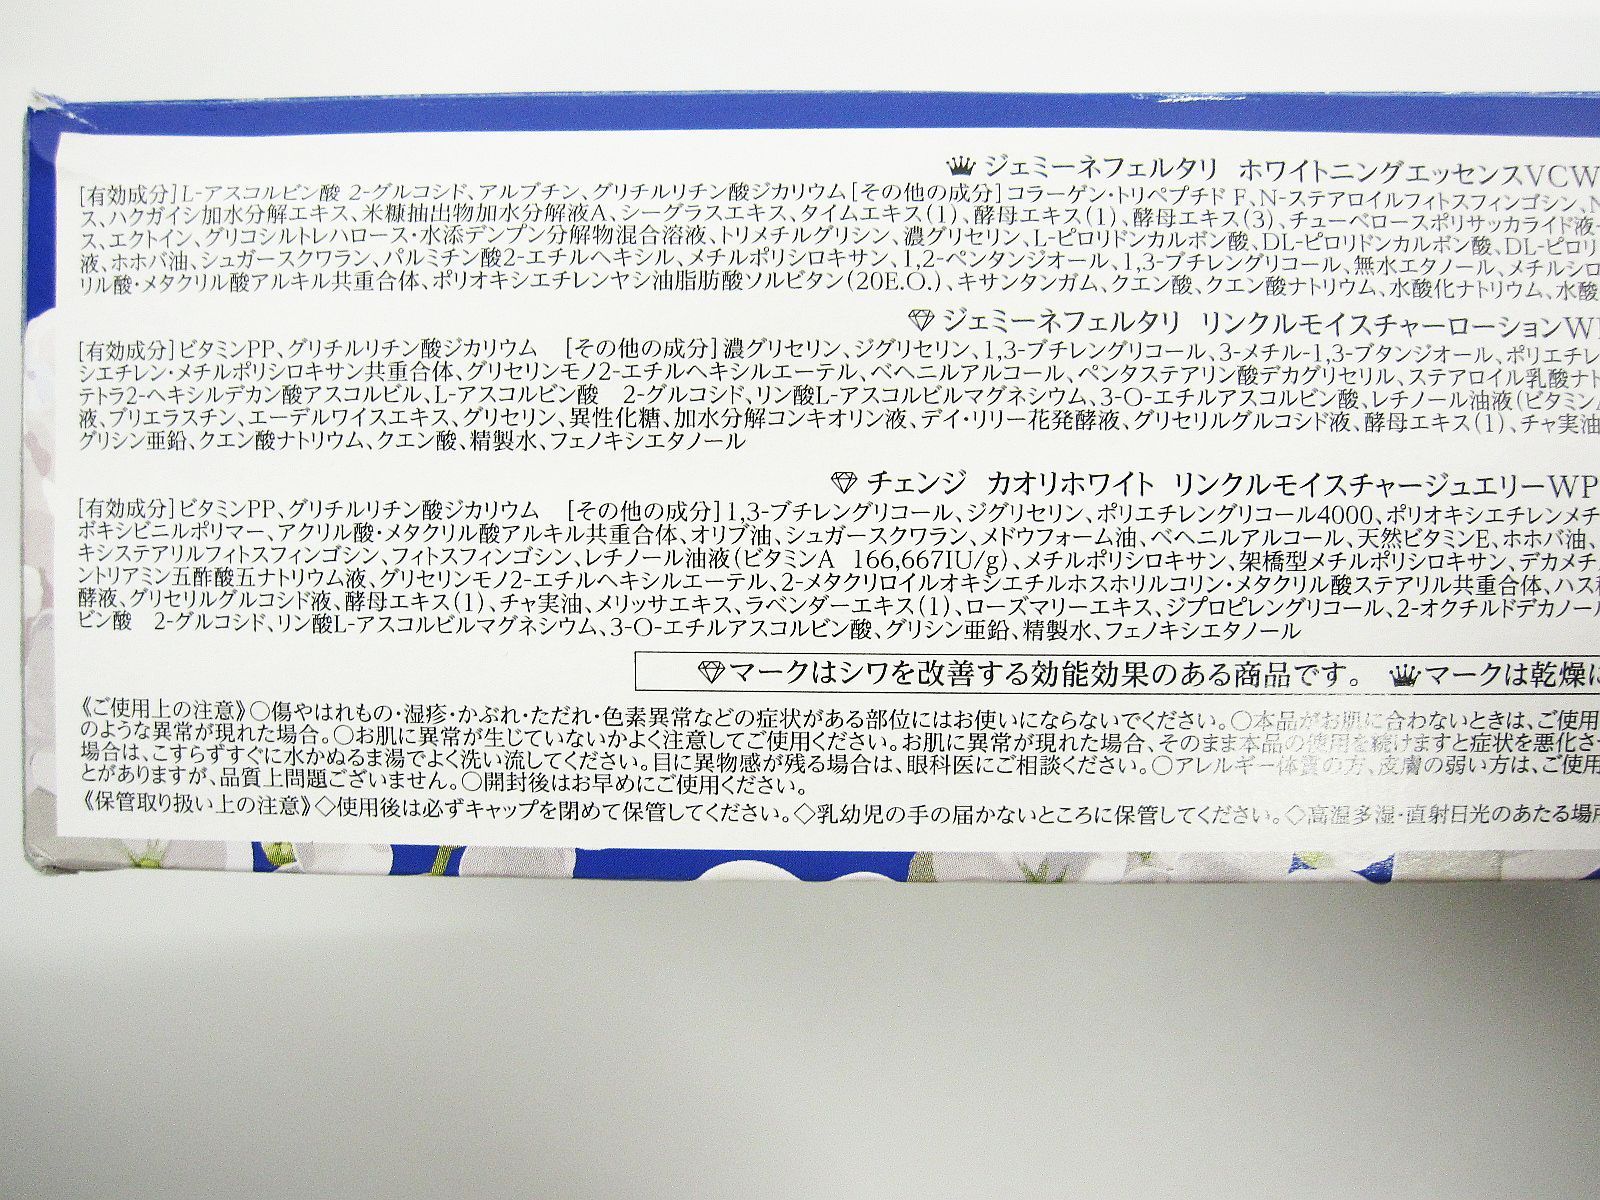 ジェミーネフェルタリ ホワイトニングエッセンスVCW
[有効成分]L-アスコルビン酸 2-グルコシド、アルブチン、グリチルリチン酸ジカリウム[その他の成分]コラーゲン・トリペプチド F、N-ステアロイルフィトスフィンゴシン、N
ス、ハクガイシ加水分解エキス、米糠抽出物加水分解液A、シーグラスエキス、タイムエキス(1)、酵母エキス(1)、酵母エキス(3)、チューベロースポリサッカライド液
ス、エクトイン、グリコシルトレハロース・水添デンプン分解物混合溶液、トリメチルグリシン、濃グリセリン、L-ピロリドンカルボン酸、DL-ピロリドンカルボン酸、DL-ピロリ
液、ホホバ油、シュガースクワラン、パルミチン酸2-エチルヘキシル、メチルポリシロキサン、1,2-ペンタンジオール、1,3-ブチレングリコール、無水エタノール、メチルシロ
リル酸・メタクリル酸アルキル共重合体、ポリオキシエチレンヤシ油脂肪酸ソルビタン(20E.O.)、キサンタンガム、クエン酸、クエン酸ナトリウム、水酸化ナトリウム、水酸
ジェミーネフェルタリ リンクルモイスチャーローションW
[有効成分]ビタミンPP、グリチルリチン酸ジカリウム [その他の成分]濃グリセリン、ジグリセリン、1,3-ブチレングリコール、3-メチル-1,3-ブタンジオール、ポリエチレ
シエチレン・メチルポリシロキサン共重合体、グリセリンモノ2-エチルヘキシルエーテル、ベヘニルアルコール、ペンタステアリン酸デカグリセリル、ステアロイル乳酸ナト
テトラ2-ヘキシルデカン酸アスコルビル、L-アスコルビン酸 2-グルコシド、リン酸L-アスコルビルマグネシウム、3-O-エチルアスコルビン酸、レチノール油液(ビタミンA
液、ブリエラスチン、エーデルワイスエキス、グリセリン、異性化糖、加水分解コンキオリン液、デイ・リリー花発酵液、グリセリルグルコシド液、酵母エキス(1)、チャ実油
グリシン亜鉛、クエン酸ナトリウム、クエン酸、精製水、フェノキシエタノール
チェンジ カオリホワイト リンクルモイスチャージュエリーWP
[有効成分]ビタミンPP、グリチルリチン酸ジカリウム [その他の成分]1,3-ブチレングリコール、ジグリセリン、ポリエチレングリコール4000、ポリオキシエチレンメチ
ボキシビニルポリマー、アクリル酸・メタクリル酸アルキル共重合体、オリブ油、シュガースクワラン、メドウフォーム油、ベヘニルアルコール、天然ビタミンE、ホホバ油、
キシステアリルフィトスフィンゴシン、フィトスフィンゴシン、レチノール油液(ビタミンA 166,667IU/g)、メチルポリシロキサン、架橋型メチルポリシロキサン、デカメチ
ントリアミン五酢酸五ナトリウム液、グリセリンモノ2-エチルヘキシルエーテル、2-メタクリロイルオキシエチルホスホリルコリン・メタクリル酸ステアリル共重合体、ハス
酵液、グリセリルグルコシド液、酵母エキス(1)、チャ実油、メリッサエキス、ラベンダーエキス(1)、ローズマリーエキス、ジプロピレングリコール、2-オクチルドデカノール
ビン酸 2-グルコシド、リン酸L-アスコルビルマグネシウム、3-O-エチルアスコルビン酸、グリシン亜鉛、精製水、フェノキシエタノール
マークはシワを改善する効能効果のある商品です。 マークは乾燥に
《ご使用上の注意》○傷やはれもの・湿疹・かぶれ・ただれ・色素異常などの症状がある部位にはお使いにならないでください。○本品がお肌に合わないときは、ご使用
のような異常が現れた場合。○お肌に異常が生じていないかよく注意してご使用ください。お肌に異常が現れた場合、そのまま本品の使用を続けますと症状を悪化さ
場合は、こすらずすぐに水かぬるま湯でよく洗い流してください。目に異物感が残る場合は、眼科医にご相談ください。○アレルギー体質の方、皮膚の弱い方は、ご使用
とがありますが、品質上問題ございません。○開封後はお早めにご使用ください。
《保管取り扱い上の注意》◇使用後は必ずキャップを閉めて保管してください。◇乳幼児の手の届かないところに保管してください。◇高温多湿・直射日光のあたる場所